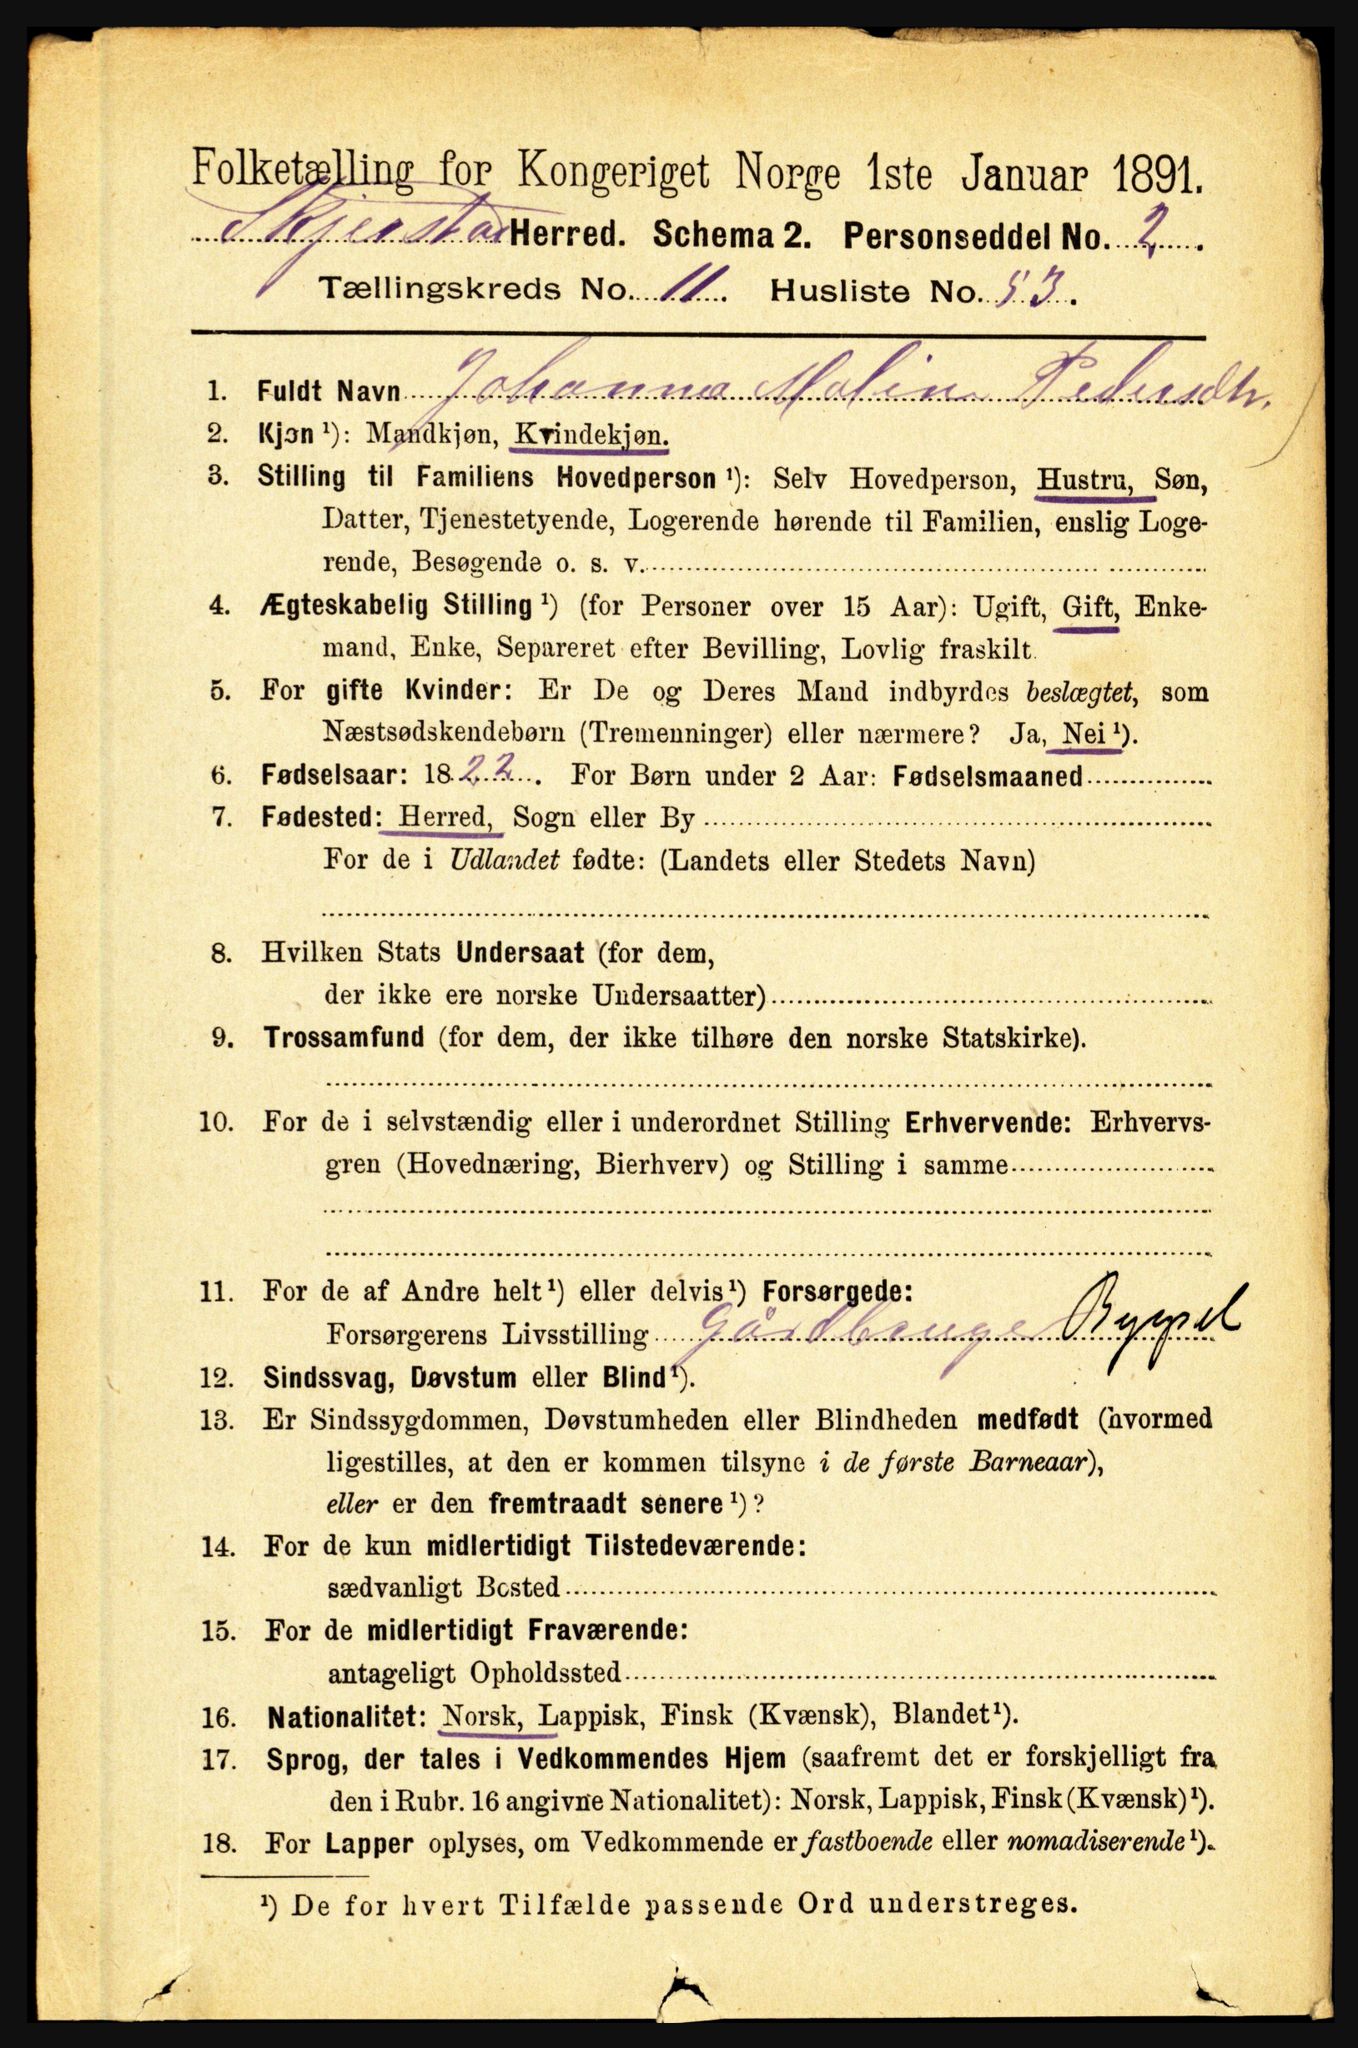 Folketælling for Kongeriget Norge 1ste Januar 1891.
Skjerstad Herred. Schema 2. Personseddel No. 2.
Tællingskreds No. 11. Husliste No. 53.
1. Fuldt Navn Johanna Malin Pedersdtr.
2. Kjøn ¹): Mandkjøn, Kvindekjøn.
3. Stilling til Familiens Hovedperson ¹): Selv Hovedperson, Hustru, Søn,
Datter, Tjenestetyende, Logerende hørende til Familien, enslig Loge-
rende, Besøgende o. s. v.
4. Ægteskabelig Stilling ¹) (for Personer over 15 Aar): Ugift, Gift, Enke-
mand, Enke, Separeret efter Bevilling, Lovlig fraskilt.
5. For gifte Kvinder: Er De og Deres Mand indbyrdes beslægtet, som
Næstsødskendebørn (Tremenninger) eller nærmere? Ja, Nei ¹).
6. Fødselsaar: 1822. For Børn under 2 Aar: Fødselsmaaned
7. Fødested: Herred, Sogn eller By
For de i Udlandet fødte: (Landets eller Stedets Navn)
8. Hvilken Stats Undersaat (for dem,
der ikke ere norske Undersaatter)
9. Trossamfund (for dem, der ikke tilhøre den norske Statskirke).
10. For de i selvstændig eller i underordnet Stilling Erhvervende: Erhvervs-
gren (Hovednæring, Bierhverv) og Stilling i samme
11. For de af Andre helt ¹) eller delvis ¹) Forsørgede:
Forsørgerens Livsstilling Gårdbruger
12. Sindssvag, Døvstum eller Blind ¹).
13. Er Sindssygdommen, Døvstumheden eller Blindheden medfødt (hvormed
ligestilles, at den er kommen tilsyne i de første Barneaar),
eller er den fremtraadt senere ¹)?
14. For de kun midlertidigt Tilstedeværende:
sædvanligt Bosted
15. For de midlertidigt Fraværende:
antageligt Opholdssted
16. Nationalitet: Norsk, Lappisk, Finsk (Kvænsk), Blandet ¹).
17. Sprog, der tales i Vedkommendes Hjem (saafremt det er forskjelligt fra
den i Rubr. 16 angivne Nationalitet): Norsk, Lappisk, Finsk (Kvænsk) ¹).
18. For Lapper oplyses, om Vedkommende er fastboende eller nomadiserende ¹).
¹) De for hvert Tilfælde passende Ord understreges.